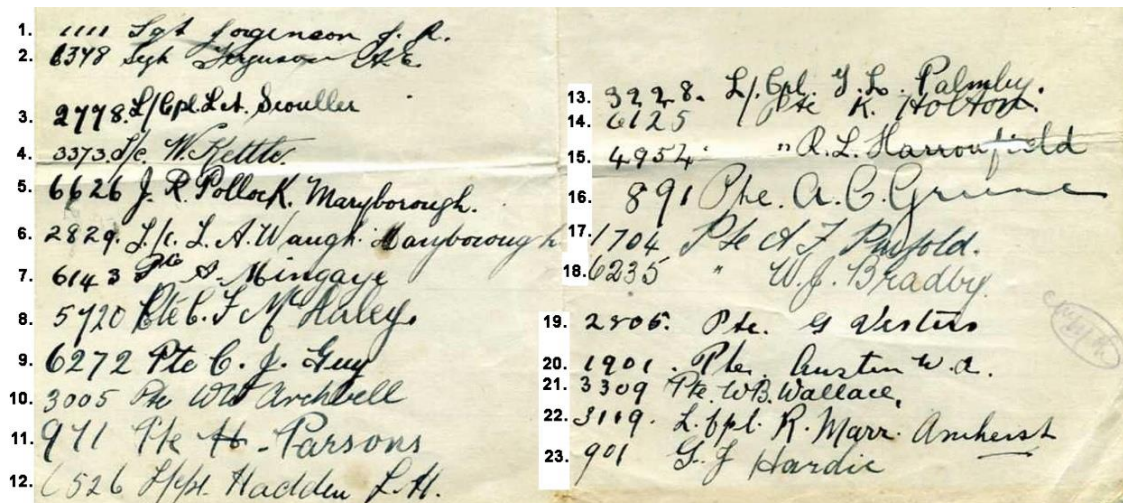 1. 1111 Sgt Jorgenson J. A.
2. 6378 Sgt Ferguson A.E.
3. 2778. L/Cpl. L.A. Scouller
4. 3373. W. Kettle.
5. 6626 J. R. Pollock. Maryborough.
6. 2829. L/c. L. A. Waugh. Maryborough
7. 6143 Pte A. Mingaye
8. 5720 Pte C. F. McHaley.
9. 6272 Pte C. J. Guy
10. 3005 Pte WW Archbell
11. 911 Pte H. Parsons
12. 6526 L/Cpl. Hadden L.H.
13. 3228. L/Cpl. Palmby.
14. 6125 Pte K. Holton.
15. 4954 " R. L. Harronfield
16. 891 Pte. A. C. Greene
17. 1704 Pte A F Penfold.
18. 6235 " W. J. Bradby.
19. 2806. Pte. G
20. 1901. Pte. Austin W. A.
21. 3309 Pte. W.B. Wallace,
22. 3119. L. Cpl. R. Marr. Amherst
23. 901 G. J Hardie